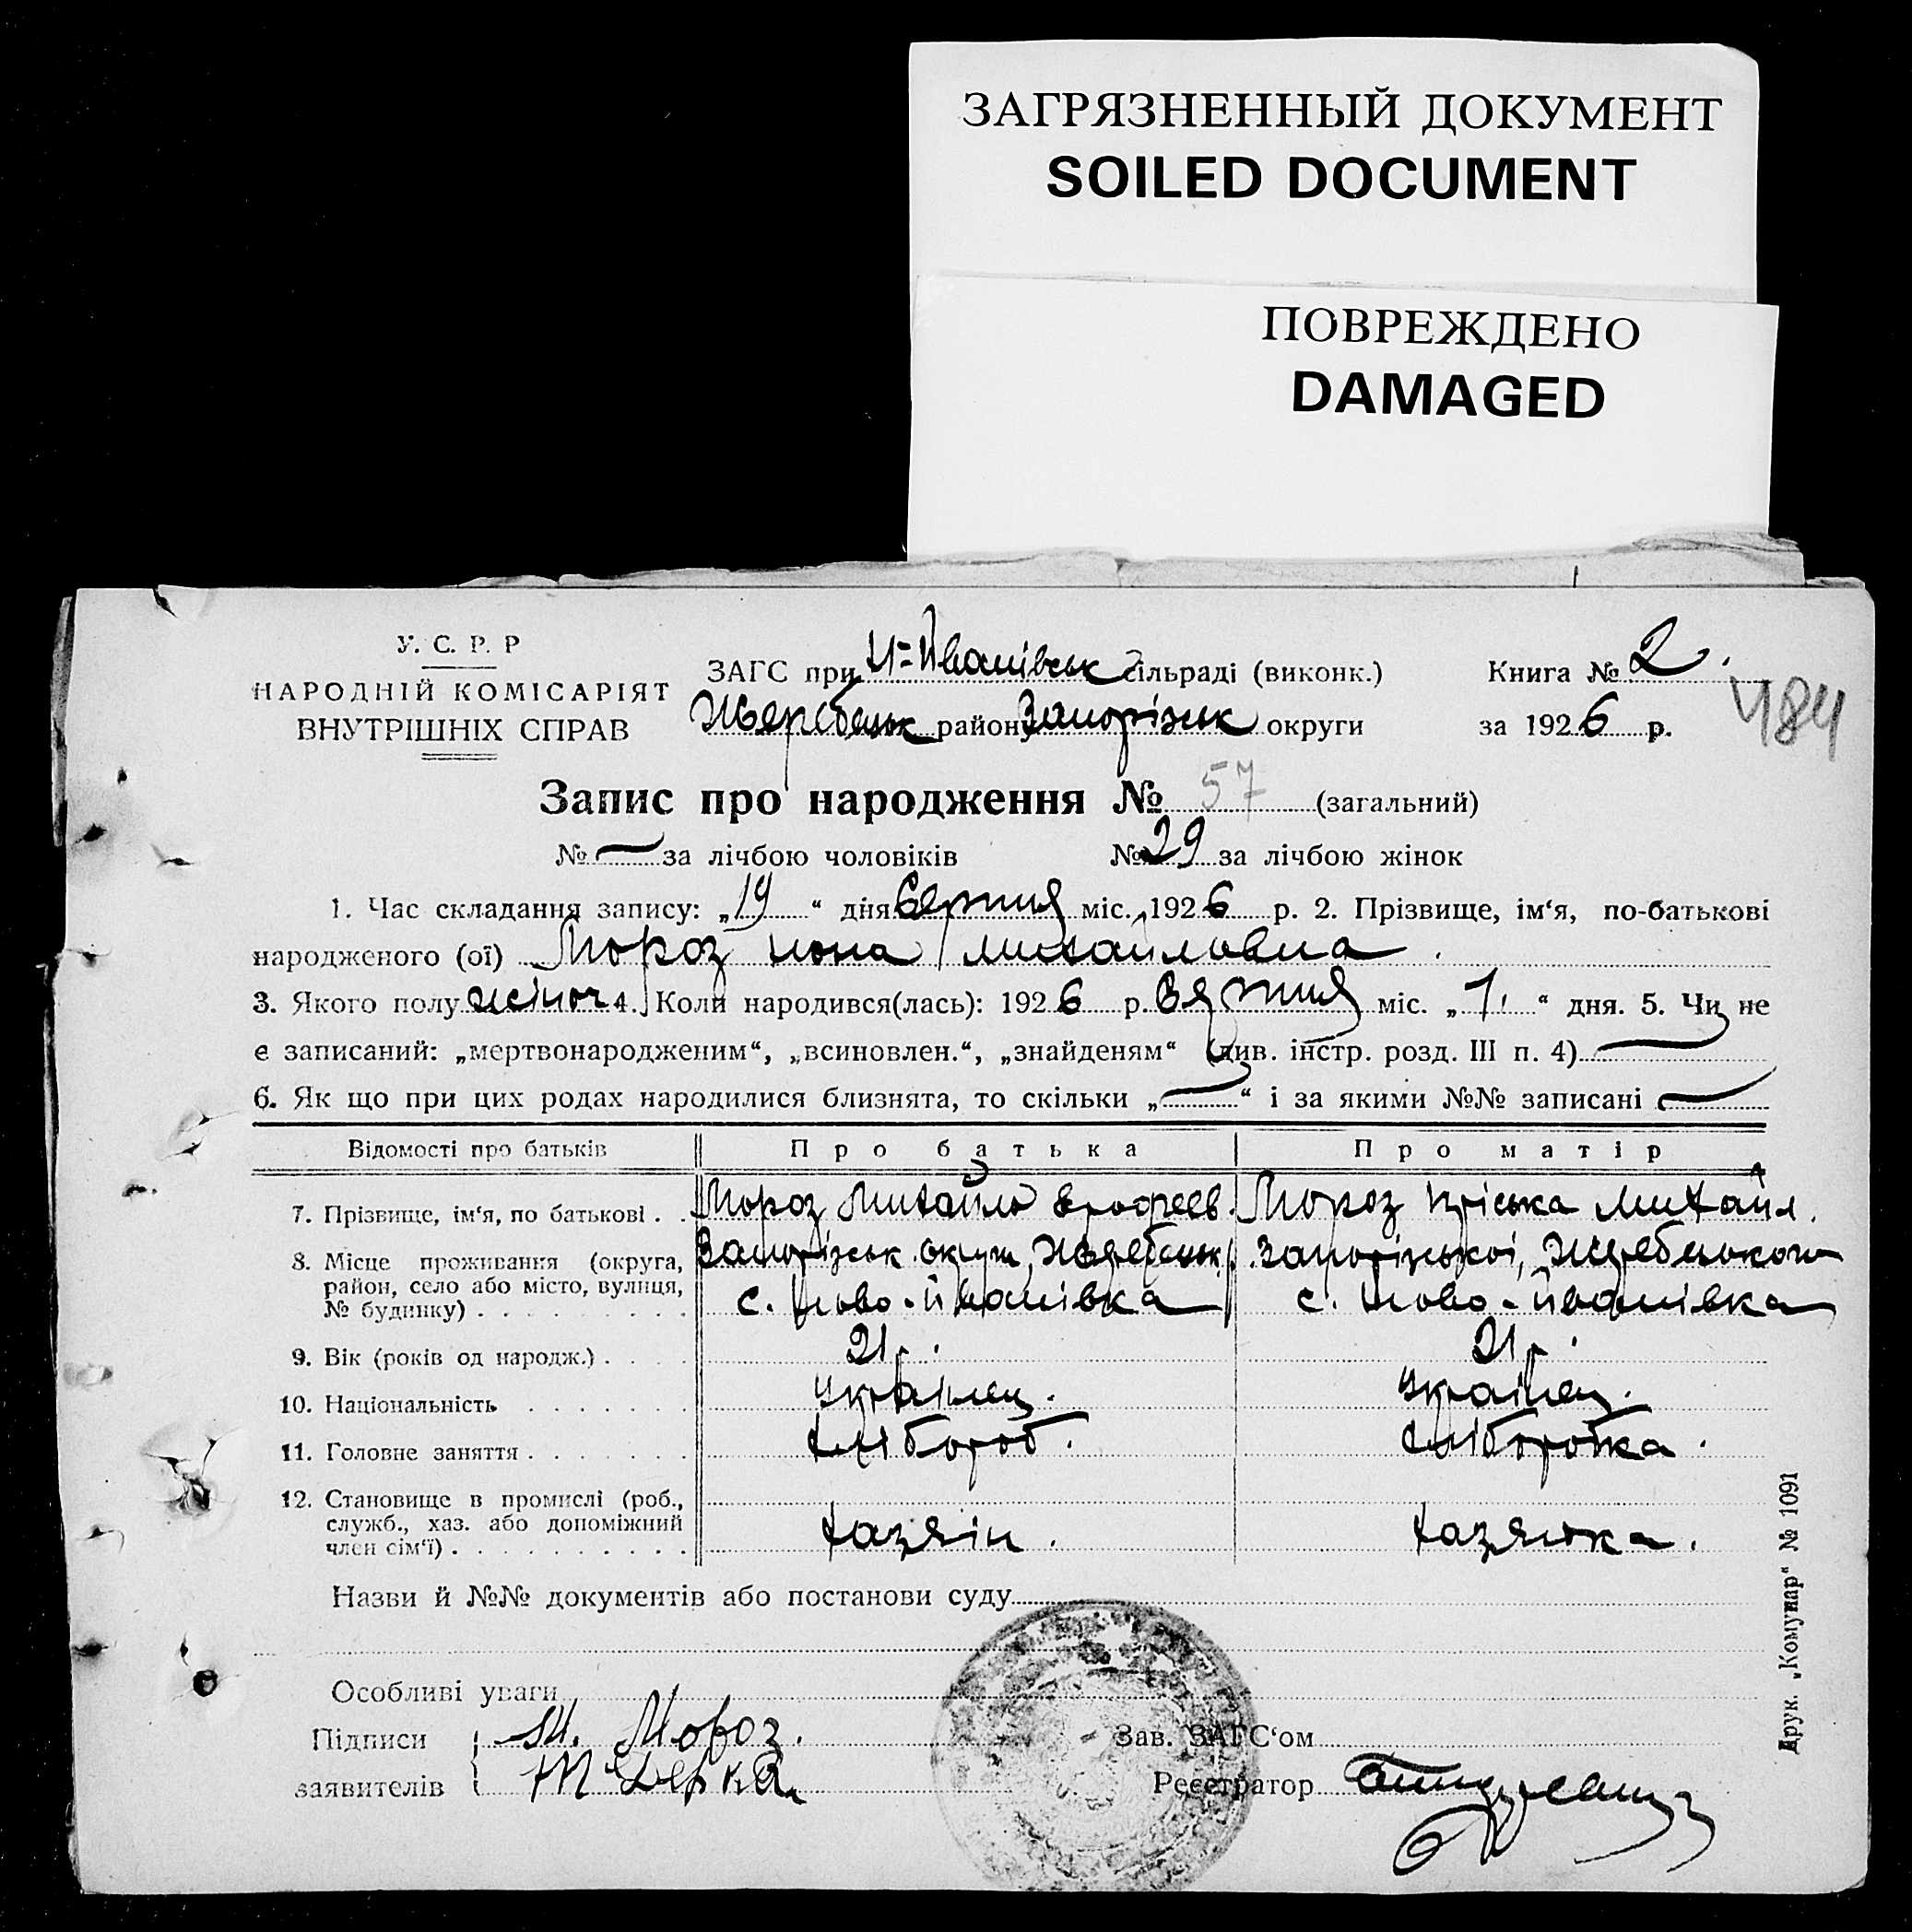 ЗАГРЯЗНЕННЫЙ ДОКУМЕНТ
SOILED DOCUMENT
ПОВРЕЖДЕНО
DAMAGED
У. С. Р. Р
НАРОДНІЙ КОМІСАРІЯТ
ВНУТРІШНІХ СПРАВ
ЗАГС при Н-Иванівськ сільраді (виконк.)
Жеребецьк району Запорізьк округи
Книга № 2.
за 1926 р.
484
Запис про народження № 57 (загальний)
№ — за лічбою чоловіків № 29 за лічбою жінок
1. Час складання запису: „19“ дня Серпня міс. 1926 р. 2. Прізвище, ім‘я, по-батькові
народженого (ої) Мороз Нона Михайловна.
3. Якого полу жіноч 4. Коли народився(лась): 1926 р. Серпня міс. „7“ дня. 5. Чи не
є записаний: „мертвонародженим“, „всиновлен.“, „знайденям“ (див. інстр. розд. III п. 4) —
6. Як що при цих родах народилися близнята, то скільки „—“ і за якими №№ записані —
Відомості про батьків Про батька Про матір
7. Прізвище, ім‘я, по батькові . . Мороз Михайло Ерофеев. Мороз Пріська Михайл.
8. Місце проживання (округа, район, село або місто, вулиця, № будинку) . . . . . . . . .
Запорізьк округи, Жеребецьк Запорізької, Жеребецького
с. Ново-Иванівка с. Ново-Иванівка
9. Вік (років од народж.) . . . . 21 р. 21 р.
10. Національність . . . . . . . Українец. Українец.
11. Головне заняття . . . . . . . Хлібороб. Хліборобка.
12. Становище в промислі (роб., служб., хаз. або допоміжний член сім‘ї) . . . . . . . . . .
хазяін. хазяйка.
Назви й №№ документів або постанови суду
Особливі уваги
Підписи заявителів М. Мороз.
Зав. ЗАГС‘ом
Реєстратор
Друк. „Комунар“ № 1091